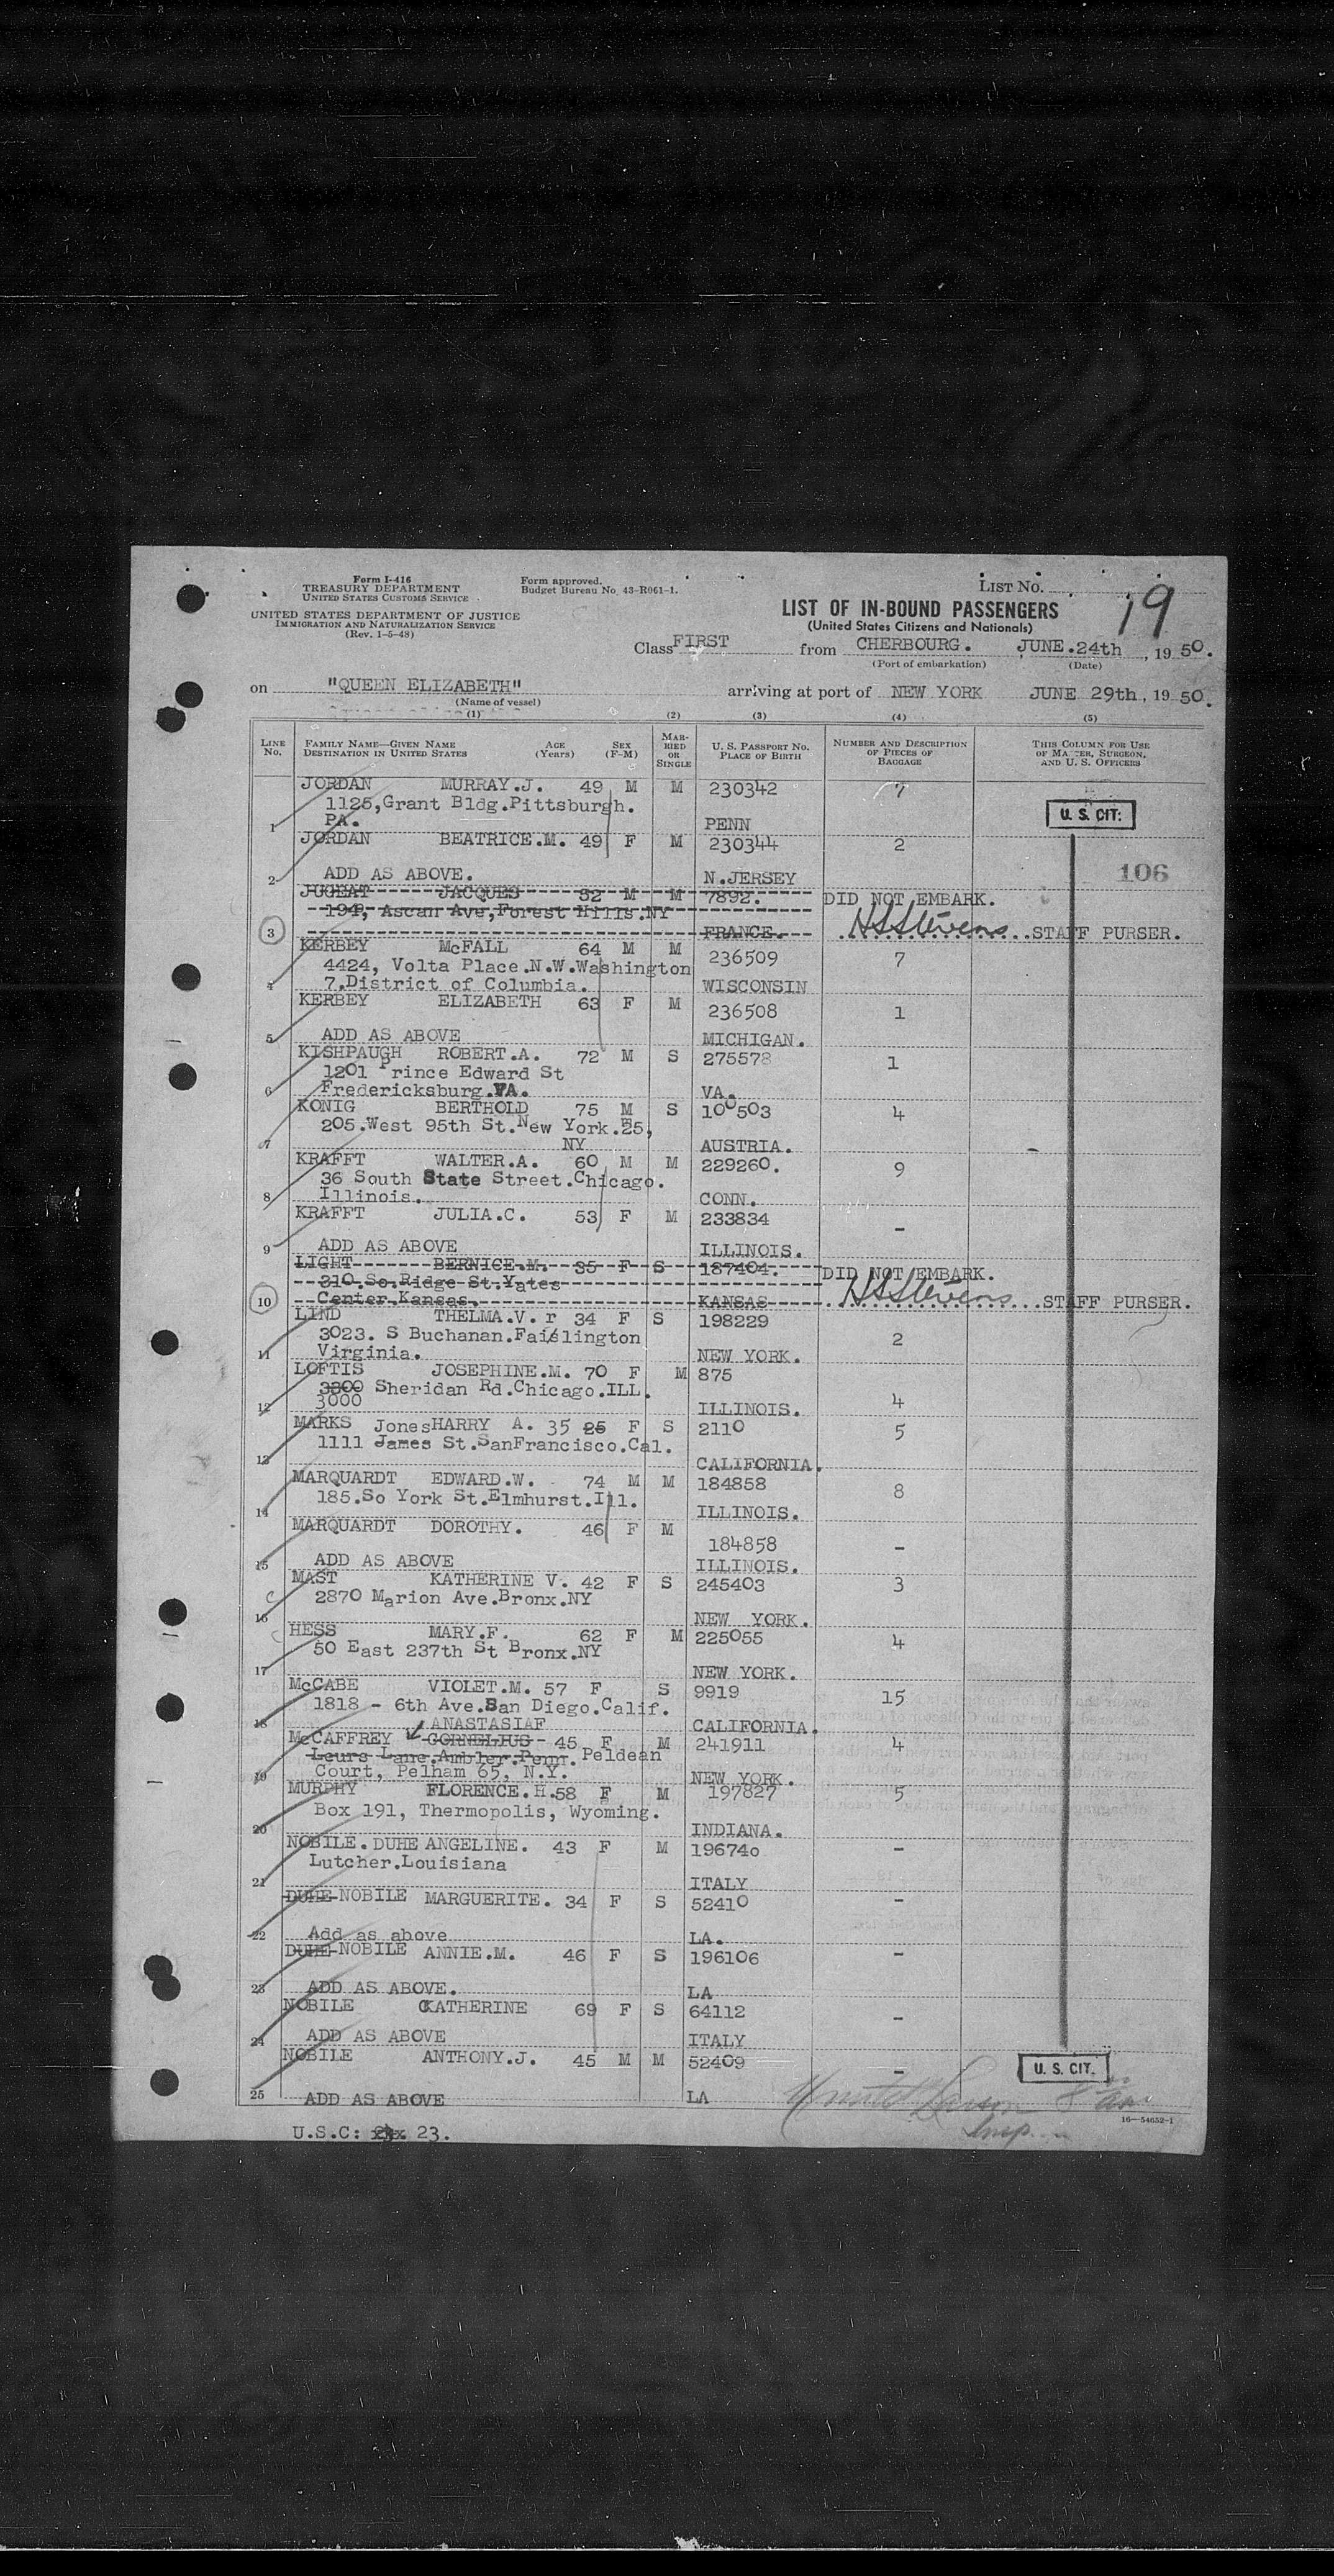 Form I-416
TREASURY DEPARTMENT
UNITED STATES CUSTOMS SERVICE
UNITED STATES DEPARTMENT OF JUSTICE
IMMIGRATION AND NATURALIZATION SERVICE
(Rev. 1-5-48)
Form approved.
Budget Bureau No. 43-R061-1.
LIST NO. 19
LIST OF IN-BOUND PASSENGERS
(United States Citizens and Nationals)
Class FIRST from CHERBOURG. JUNE.24th, 1950.
(Port of embarkation) (Date)
on "QUEEN ELIZABETH" arriving at port of NEW YORK JUNE 29th, 1950.
(Name of vessel)
(1) (2) (3) (4) (5)
LINE NO. FAMILY NAME—GIVEN NAME DESTINATION IN UNITED STATES AGE (Years) SEX (F-M) MARRIED OR SINGLE U. S. PASSPORT NO. PLACE OF BIRTH NUMBER AND DESCRIPTION OF PIECES OF BAGGAGE THIS COLUMN FOR USE OF MASTER, SURGEON, AND U. S. OFFICERS
JORDAN MURRAY.J. 49 M M 230342 7
1125,Grant Bldg.Pittsburgh. U. S. CIT:
1 PA. PENN
JORDAN BEATRICE.M. 49 F M 230344 2
2 ADD AS ABOVE. N.JERSEY 106
JUGEAT JACQUES 52 M M 7892. DID NOT EMBARK.
194, Ascan Ave,Forest Hills.NY
3 FRANCE. HSStevens STAFF PURSER.
KERBEY McFALL 64 M M 236509 7
4424, Volta Place.N.W.Washington
4 7.District of Columbia. WISCONSIN
KERBEY ELIZABETH 63 F M 236508 1
5 ADD AS ABOVE MICHIGAN.
KISHPAUGH ROBERT.A. 72 M S 275578 1
1201 Prince Edward St
6 Fredericksburg.VA. VA.
KONIG BERTHOLD 75 M S 100503 4
205.West 95th St.New York.25,
7 NY AUSTRIA.
KRAFFT WALTER.A. 60 M M 229260. 9
36 South State Street.Chicago.
8 Illinois. CONN.
KRAFFT JULIA.C. 53 F M 233834 -
9 ADD AS ABOVE ILLINOIS.
LIGHT BERNICE.M. 35 F S 187404. DID NOT EMBARK.
310.So.Ridge St.Yates
10 Center.Kansas. KANSAS HSStevens STAFF PURSER.
LIND THELMA.V. r 34 F S 198229
3023. S Buchanan.Faislington 2
11 Virginia. NEW YORK.
LOFTIS JOSEPHINE.M. 70 F M 875
3800 Sheridan Rd.Chicago.ILL. 4
12 3000 ILLINOIS.
MARKS Jones HARRY A. 35 25 F S 2110 5
1111 James St.SanFrancisco.Cal.
13 CALIFORNIA.
MARQUARDT EDWARD.W. 74 M M 184858 8
185.So York St.Elmhurst.Ill.
14 ILLINOIS.
MARQUARDT DOROTHY. 46 F M
184858 -
15 ADD AS ABOVE ILLINOIS.
MAST KATHERINE V. 42 F S 245403 3
C 2870 Marion Ave.Bronx.NY
16 NEW YORK.
HESS MARY.F. 62 F M 225055 4
50 East 237th St Bronx.NY
17 NEW YORK.
McCABE VIOLET.M. 57 F S 9919 15
1818 - 6th Ave.San Diego.Calif.
18 ANASTASIAF CALIFORNIA.
McCAFFREY CORNELIUS 45 F M 241911 4
Leurs Lane.Ambler.Penn. Peldean
19 Court, Pelham 65, N.Y. NEW YORK.
MURPHY FLORENCE.H.58 F M 197827 5
Box 191, Thermopolis, Wyoming.
20 INDIANA.
NOBILE.DUHE ANGELINE. 43 F M 196740 -
Lutcher.Louisiana
21 ITALY
DUHE-NOBILE MARGUERITE. 34 F S 52410 -
22 Add as above LA.
DUHE-NOBILE ANNIE.M. 46 F S 196106 -
23 ADD AS ABOVE. LA
NOBILE KATHERINE 69 F S 64112 -
24 ADD AS ABOVE ITALY
NOBILE ANTHONY.J. 45 M M 52409 - U. S. CIT.
25 ADD AS ABOVE LA
16—54652-1
U.S.C: 23.
Insp.